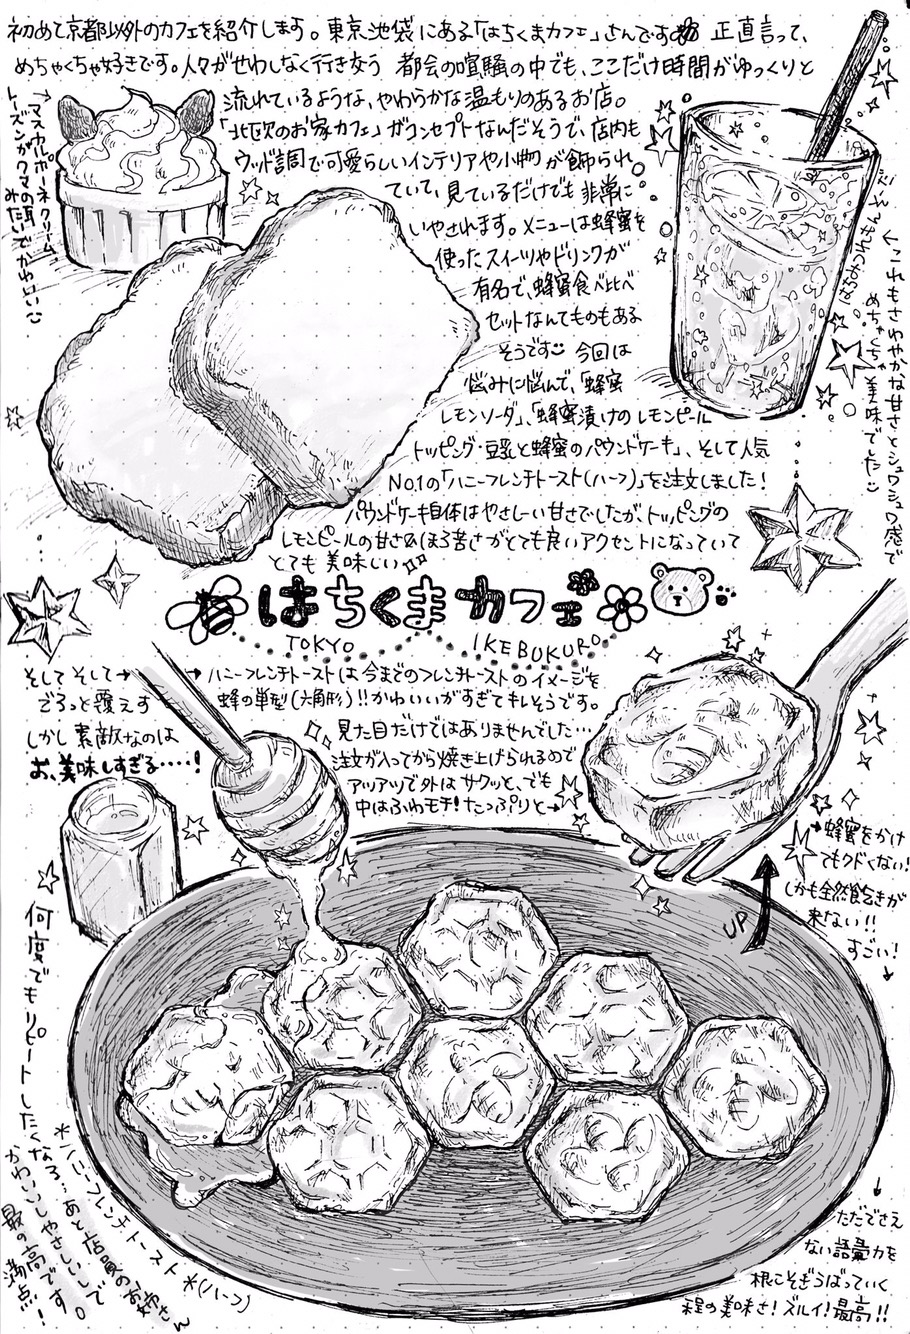 初めて京都以外のカフェを紹介します。東京池袋にある「はちくまカフェ」さんです 正直言って、
めちゃくちゃ好きです。人々がせわしなく行き交う 都会の喧騒の中でも、ここだけ時間がゆっくりと
流れているような、やわらかな温もりのあるお店。
「北欧のお家カフェ」がコンセプトなんだそうで、店内も
ウッド調で可愛らしいインテリアや小物が飾られ
ていて、見ているだけでも非常に
いやされます。メニューは蜂蜜を
使ったスイーツやドリンクが
有名で、蜂蜜食べ比べ
セットなんてものもある
そうです 今回は
悩みに悩んで、「蜂蜜
レモンソーダ」、「蜂蜜漬けのレモンピール
トッピング・豆乳と蜂蜜のパウンドケーキ」、そして人気
No.1の「ハニーフレンチトースト(ハーフ)」を注文しました!
パウンドケーキ自体はやさしーい甘さでしたが、トッピングの
レモンピールの甘さ&ほろ苦さがとても良いアクセントになっていて
とても美味しい
→マスカルポーネクリーム
トーズンがクマの耳
みたいでかわいい
はちみつれもんそーだ
←これもさわやかな甘さとシュワシュワ感で
めちゃくちゃ美味でした
はちくまカフェ
TOKYO IKEBUKURO
→ハニーフレンチトーストは今までのフレンチトーストのイメージを
蜂の巣型(六角形)!!かわいいがすぎてキレそうです。
見た目だけではありませんでした…
注文が入ってから焼き上げられるので
アツアツで外はサクッと、でも
中はふわモチ!たっぷりと→
そして そして→
ごろっと覆えす
しかし素敵なのは
お、美味しすぎる‥‥!
→蜂蜜をかけ
てもクドくない!
しかも全然食べ飽きが
来ない!!
すごい!
UP
↓
ただでさえ
ない語彙力を
根こそぎうばっていく
程の美味さ!ズルイ!最高!!
何度でもリピートしたくなる…あと店員のお姉さん
かわいいしやさしいしで
最の高です。
満点!
*ハニーフレンチトースト*(ハーフ)